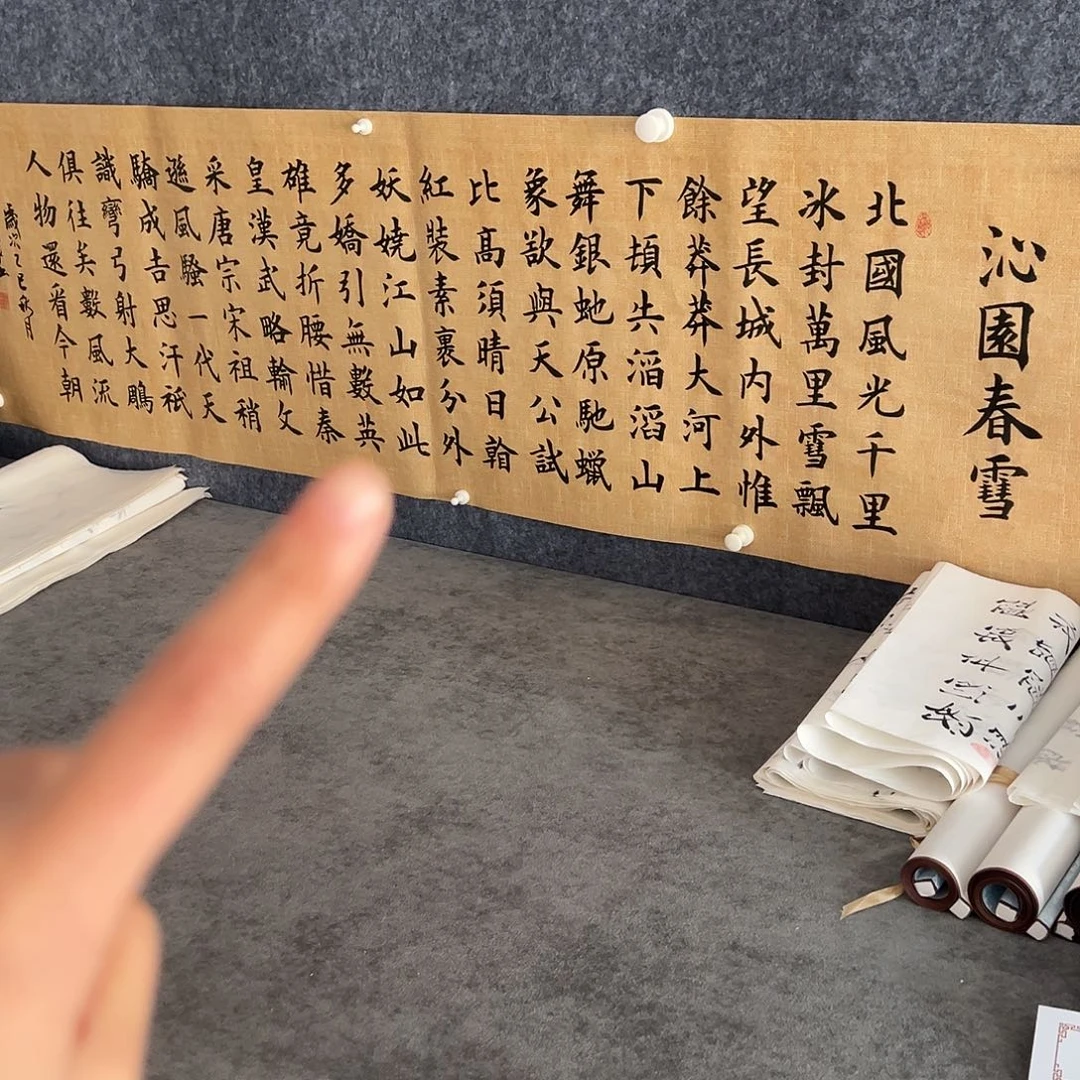 沁園春雪
北國風光千里
冰封萬里雪飄
望長城内外惟
餘莽莽大河上
下頓失滔滔山
舞銀虵原馳蠟
象欲與天公試
比高須晴日看
紅裝素裹分外
妖嬈江山如此
多嬌引無數英
雄竞折腰惜秦
皇漢武略輸文
采唐宗宋祖稍
遜風騷一代天
驕成吉思汗祇
識彎弓射大鵰
俱往矣數風流
人物還看今朝
歲次乙巳秋月